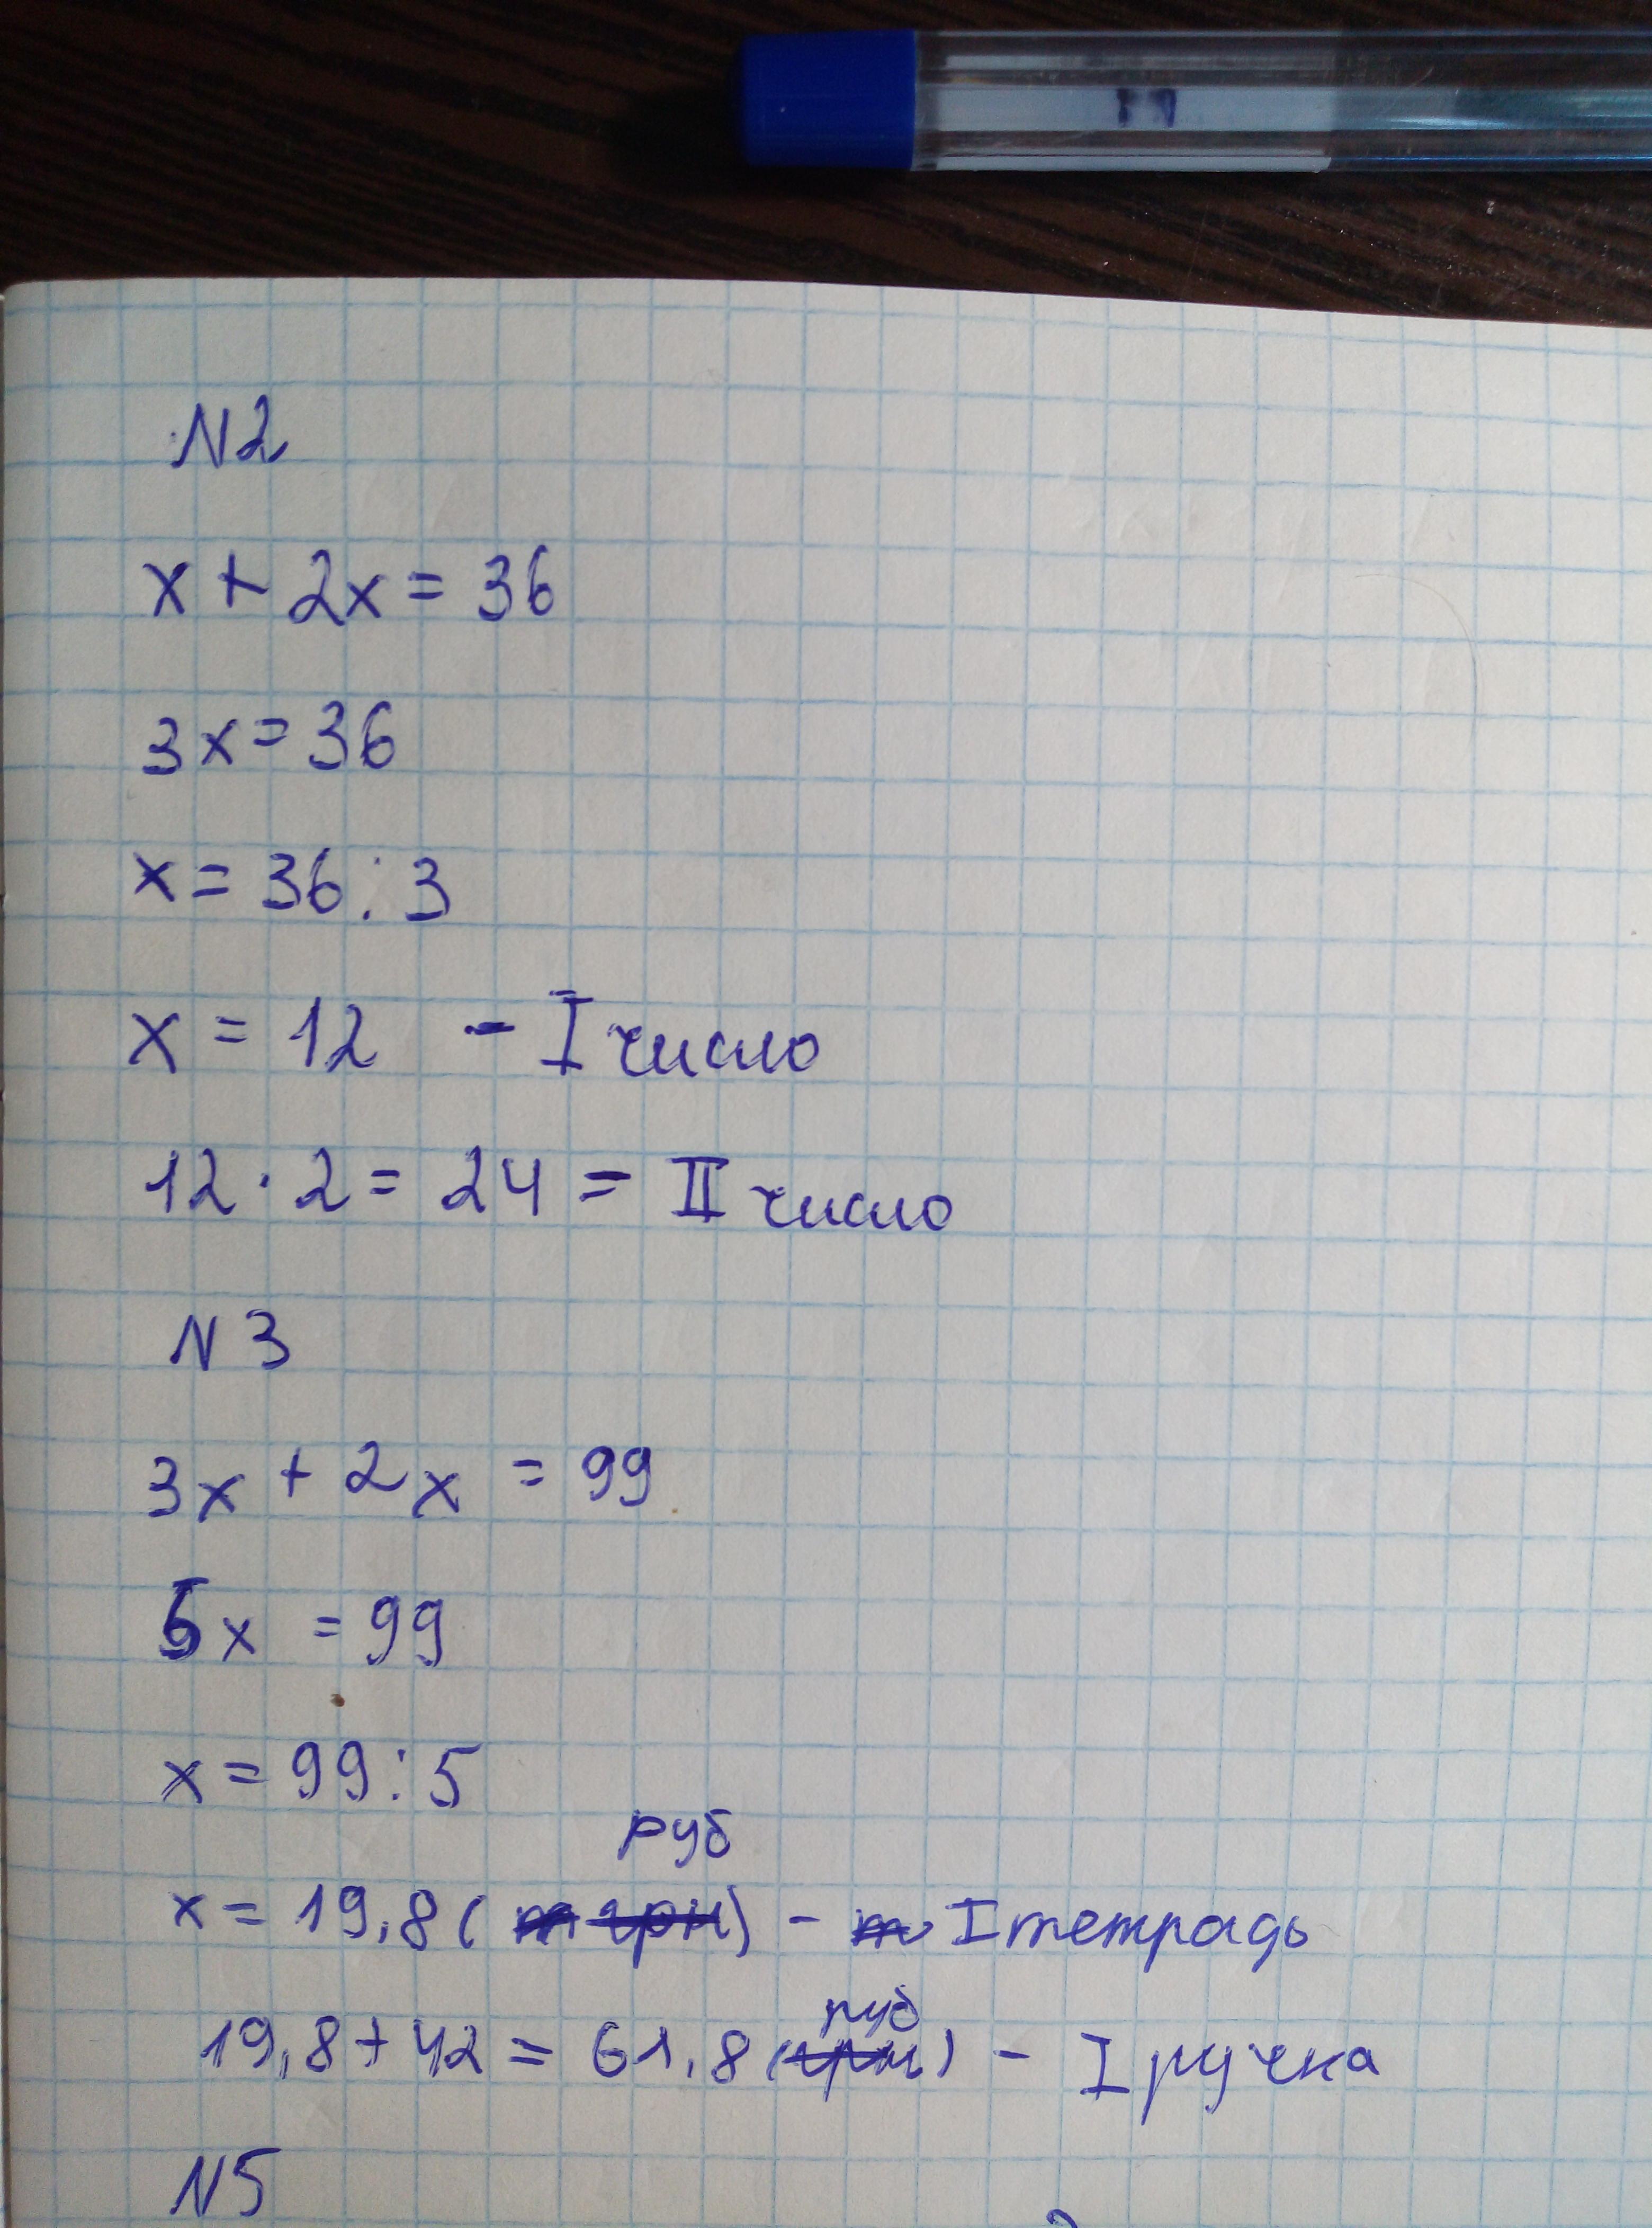 N2
x + 2x = 36
3x = 36
x = 36 : 3
x = 12 - I число
12 · 2 = 24 - II число
N 3
3x + 2x = 99
5x = 99
x = 99 : 5
руб
x = 19,8 ( грн) - I тетрадь
руб
19,8 + 42 = 61,8 (грн) - I ручка
N5